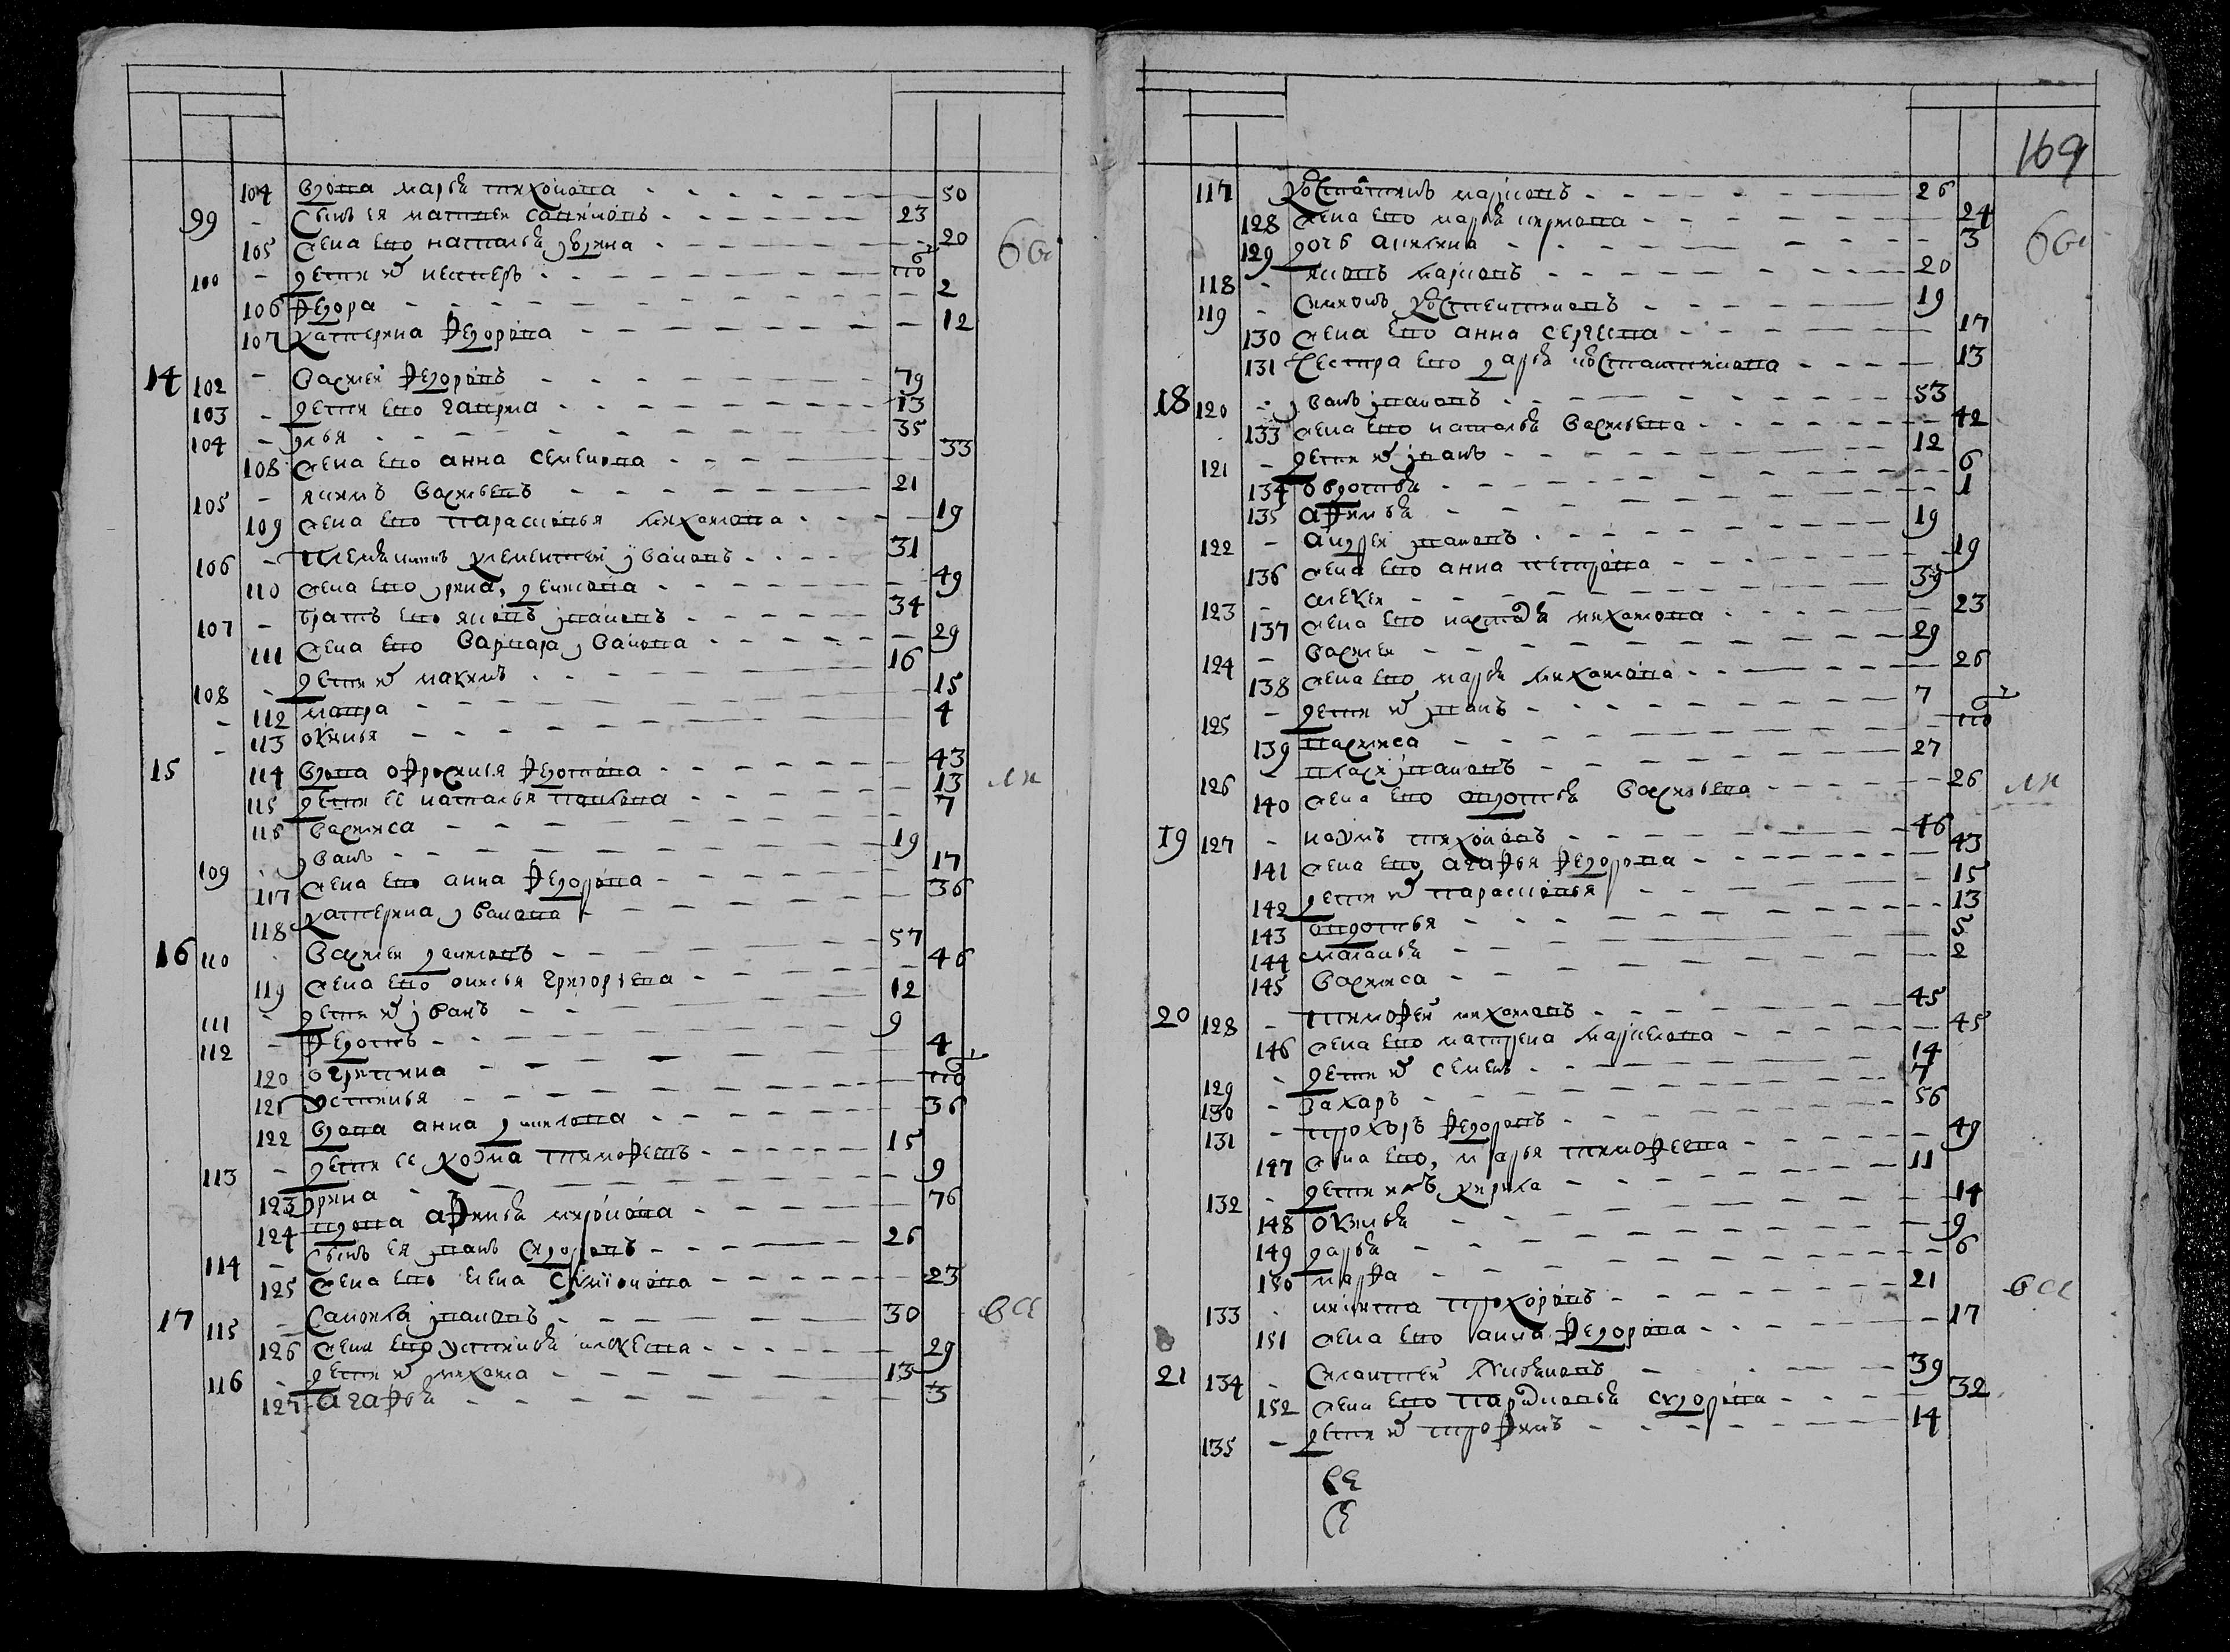 104 вдова марѳа тихонова 50
99 - сынъ ея матвеи самсоновъ 23
105 жена ево наталья 20
100 - дети их нестеръ
106 федора 2
107 катерина федорова 12
14 102 - василей федоровъ 79
103 - дети ево гаврила 13
104 - илья 35
108 жена ево анна семенова 33
105 - якимъ васильевъ 21
109 жена ево парасковья михайлова 19
106 - племянникъ клементей ивановъ 31
110 жена ево ирина денисова 49
107 - братъ ево яковъ ивановъ 34
111 жена ево варвара иванова 29
108 - дети их максимъ 16
- 112 мавра 15
- 113 оксинья 4
15 114 вдова офросинья федотова 43
115 дети ее наталья павлова 13
116 василиса 7
109 иванъ 19
117 жена ево анна федорова 17
118 катерина иванова 36
16 110 василеи даниловъ 57
119 жена ево григорьева 46
111 - дети их иванъ 12
112 - федотъ 9
120 огрипина 4
121 устинья
122 вдова анна 36
113 - дети ее козма тимофеевъ 15
123 ирина 9
124 вдова афимья миронова 76
114 - сынъ ея иванъ сидоровъ 26
125 жена ево елена симионова 23
17 115 - самоила ивановъ 30 все
126 жена ево устинья алексеева 29
116 - дети их михаила 13
127 агафья 3
169
117 костантинъ марковъ 26
128 жена ево марья 24
129 дочь акилина 3
118 - яковъ марковъ 20
119 - симионъ костентиновъ 19
130 жена ево анна сергеева 17
131 сестра ево дарья костантинова 13
18 120 - иванъ ивановъ 53
133 жена ево наталья васильева 42
121 - дети их иванъ 12
134 овдотья 6
135 афимья 1
122 - андреи ивановъ 19
136 жена ево анна петрова 19
123 - алексеи 39
137 жена ево михаилова 23
124 - василеи 29
138 жена ево марья михаилова 26
125 - дети их иванъ 7
139 василиса
126 - ивановъ 27
140 жена ево овдотья васильева 26
19 127 - наумъ тихоновъ 46
141 жена ево агафья федорова 43
142 дети их парасковья 15
143 овдотья 13
144 маланья 5
145 василиса 2
20 128 - тимофеи михаиловъ 45
146 жена ево матрена маркелова 45
129 - дети их семенъ 14
130 - захаръ 7
131 - прохоръ федоровъ 56
147 жена ево, марья тимофеева 49
132 - дети ихъ кирила 11
148 оксинья 14
149 дарья 9
150 марфа 6
133 никита прохоровъ 21 все
151 жена ево анна федорова 17
21 134 - силантей 39
152 жена ево парасковья сидорова 32
135 - дети их трофимъ 14